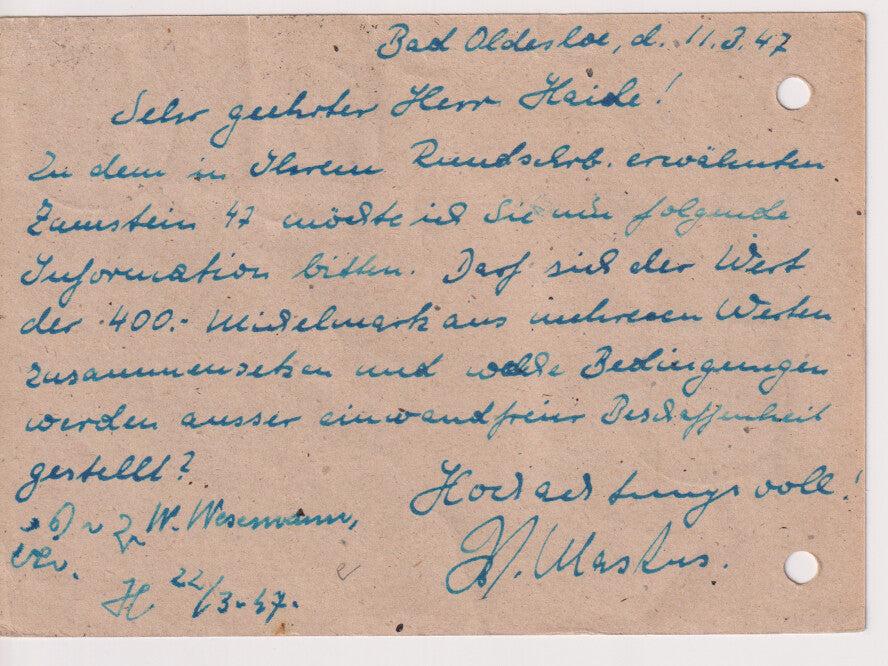 Bad Oldesloe, d. 11.3.47
Sehr geehrter Herr Haide!
Zu dem in Ihrem Rundschrb. erwähnten
Zumstein 47 möchte ich Sie um folgende
Information bitten. Darf sich der Wert
der 400.- Michelmark aus mehreren Werten
zusammensetzen und welche Bedingungen
werden ausser einwandfreier Beschaffenheit
gestellt?
Hochachtungsvoll!
W. Wesemann,
H 22/3.47.